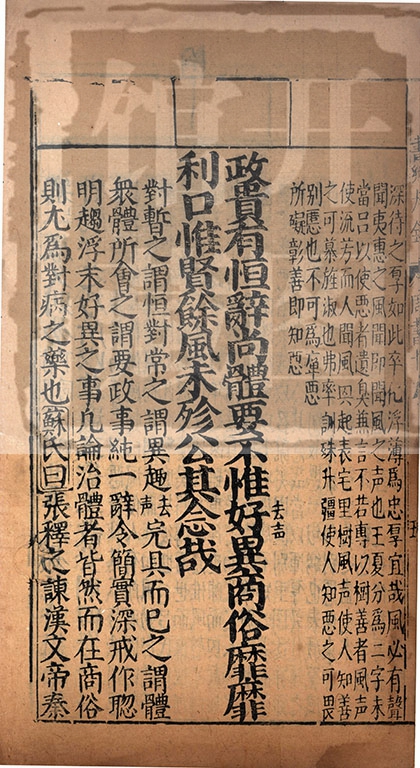 深待之厚如此卒凡浮薄爲忠厚宜哉風必有聲
聞夷惠之風聞即聞風之声也王夏分爲二字未
當吕以使惡者遺臭無言不若專以樹善者風声
使流芳而人聞風興起表宅里樹風声使人知善
之可慕旌淑也弗率訓殊井疆使人知惡之可畏
别慝也不可爲癉惡
所癉彰善即知惡
政貴有恒辭尚體要不惟好異商俗靡靡
去声
利口惟賢餘風未殄公其念哉
對暫之謂恒對常之謂異趣去声完具而已之謂體
衆體所會之謂要政事純一辭令簡實深戒作聦
明趨浮末好異之事凡論治體者皆然而在商俗
則尤爲對病之藥也蘇氏曰張釋之諫漢文帝秦